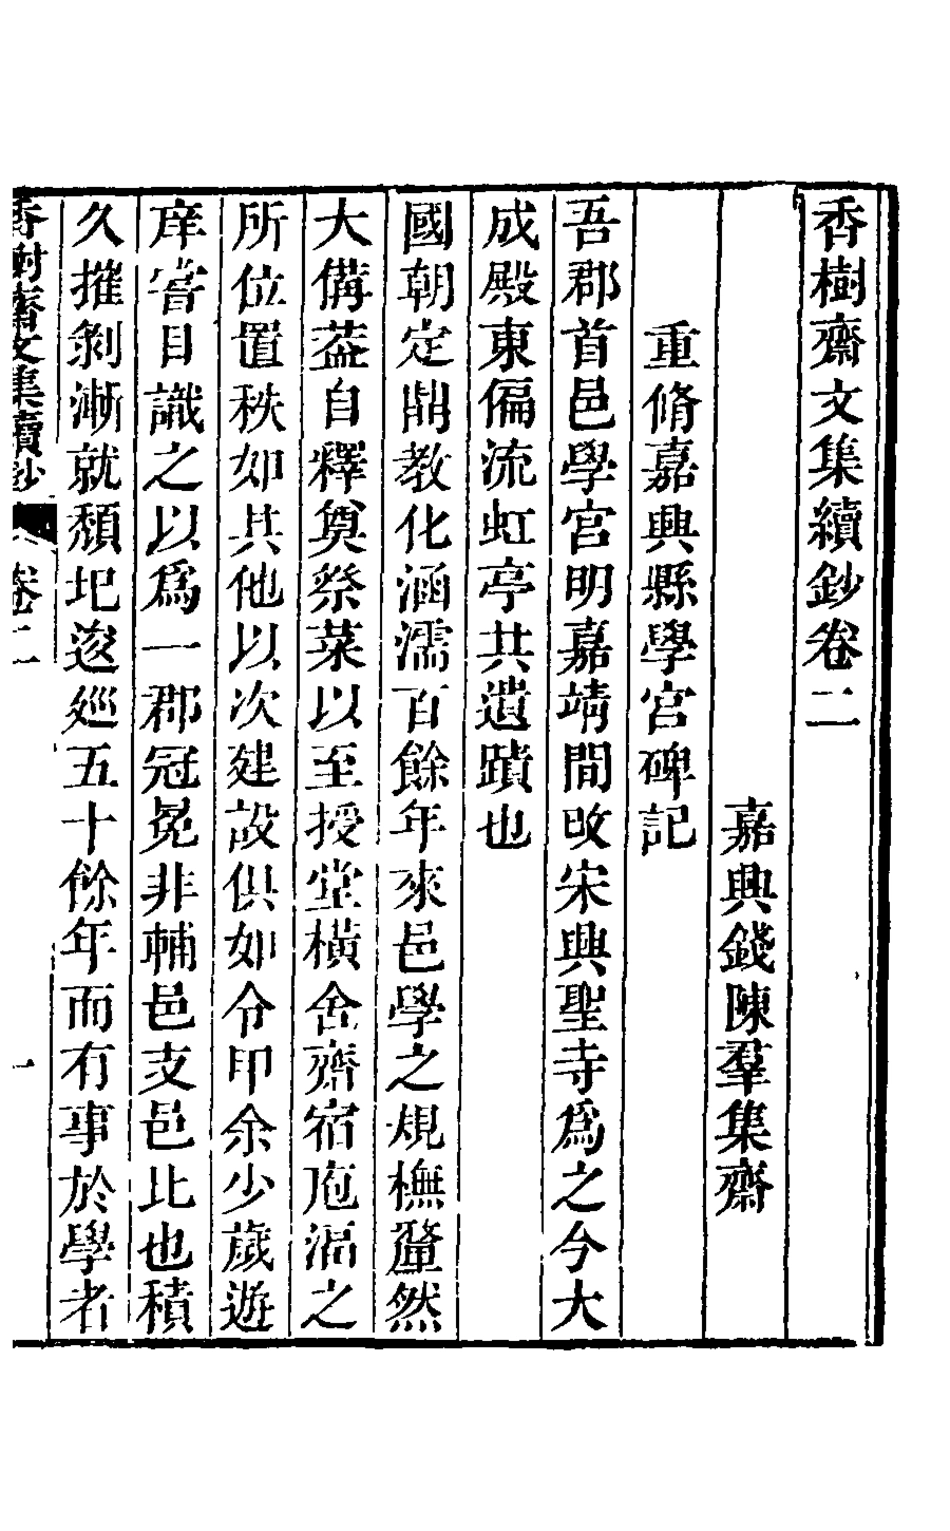 香樹齋文集續鈔卷二
嘉興錢陳羣集齋
重脩嘉興縣學宮碑記
吾郡首邑學宮明嘉靖間改宋興聖寺爲之今大
成殿東偏流虹亭共遺蹟也
國朝定鼎教化涵濡百餘年來邑學之規橅釐然
大備葢自釋奠祭菜以至授堂橫舍齊宿庖湢之
所位置秩如其他以次建設俱如令甲余少歲遊
庠嘗目識之以爲一郡冠冕非輔邑支邑比也積
久摧剝漸就頽圯逡廵五十餘年而有事於學者
香樹齋文集續鈔
卷二
一